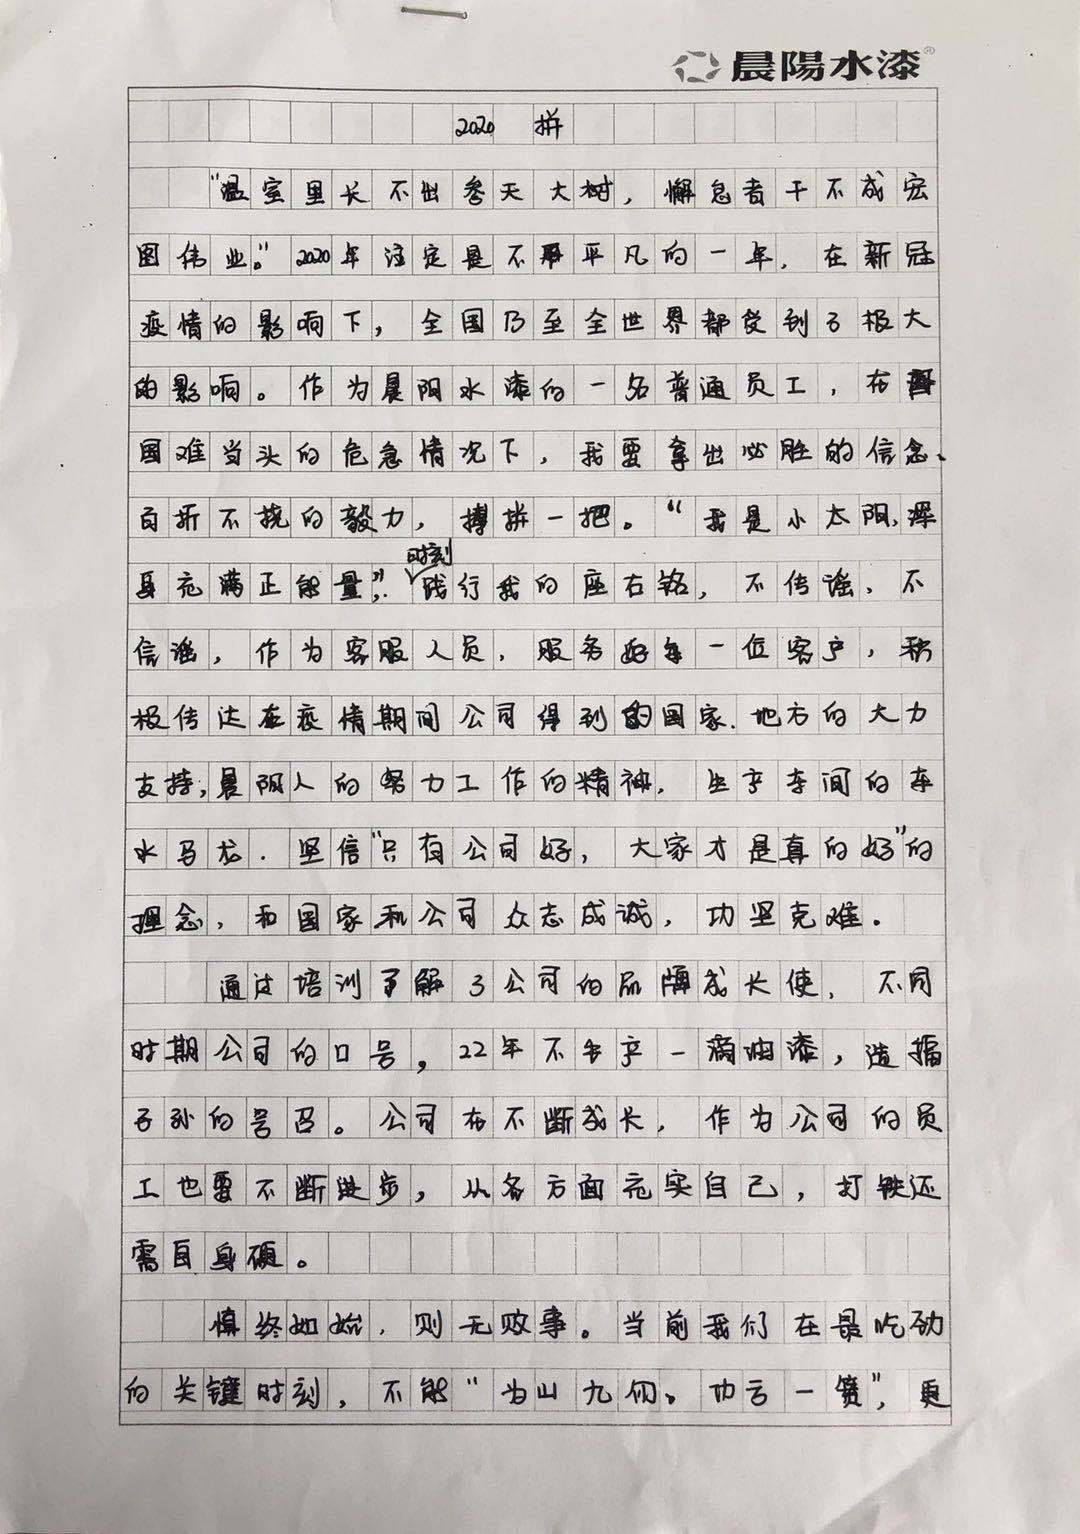 晨陽水漆®
2020 拼
“温室里长不出参天大树，懈怠者干不成宏
图伟业。”2020年注定是不平凡的一年，在新冠
疫情的影响下，全国乃至全世界都受到了极大
的影响。作为晨阳水漆的一名普通员工，在
国难当头的危急情况下，我要拿出必胜的信念、
百折不挠的毅力，搏拼一把。“我是小太阳，浑
身充满正能量”，时刻践行我的座右铭，不传谣，不
信谣，作为客服人员，服务好每一位客户，积
极传达在疫情期间公司得到的国家、地方的大力
支持，晨阳人的努力工作的精神，生产车间的车
水马龙．坚信“只有公司好，大家才是真的好”的
理念，和国家和公司众志成诚，功坚克难。
通过培训了解了公司的品牌成长使，不同
时期公司的口号，22年不生产一滴油漆，造福
子孙的号召。公司在不断成长，作为公司的员
工也要不断进步，从各方面充实自己，打铁还
需自身硬。
慎终如始，则无败事。当前我们在最吃劲
的关键时刻，不能“为山九仞。功亏一篑”，更